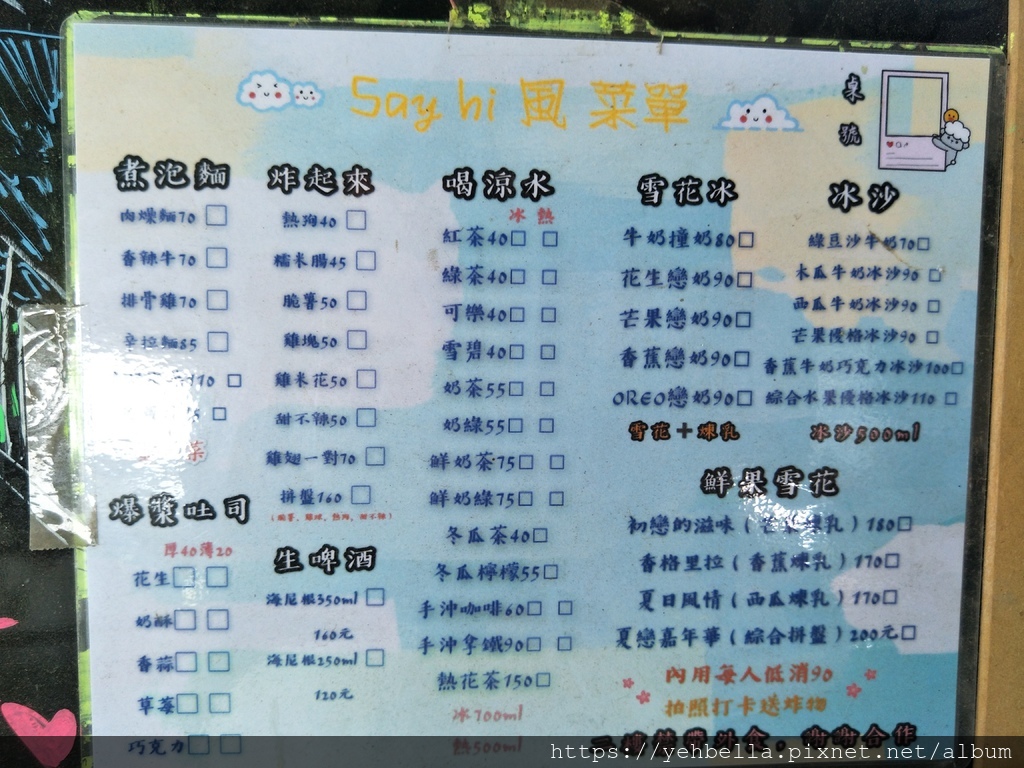 Say hi 風菜單
桌號
煮泡麵
肉燥麵70 □
香辣牛70 □
排骨雞70 □
辛拉麵85 □
110 □
5 □
菜
爆漿吐司
厚40薄20
花生□ □
奶酥□ □
香蒜□ □
草莓□ □
巧克力□ □
炸起來
熱狗40 □
糯米腸45 □
脆薯50 □
雞塊50 □
雞米花50 □
甜不辣50 □
雞翅一對70 □
拼盤160 □
生啤酒
海尼根350ml □
160元
海尼根250ml □
120元
喝涼水
冰 熱
紅茶40□ □
綠茶40□ □
可樂40□ □
雪碧40□ □
奶茶55□ □
奶綠55□ □
鮮奶茶75□ □
鮮奶綠75□ □
冬瓜茶40□
冬瓜檸檬55□
手沖咖啡60□ □
手沖拿鐵90□ □
熱花茶150□
冰700ml
熱500ml
雪花冰
牛奶撞奶80□
花生戀奶90□
芒果戀奶90□
香蕉戀奶90□
OREO戀奶90□
雪花+煉乳
冰沙
綠豆沙牛奶70□
木瓜牛奶冰沙90 □
西瓜牛奶冰沙90 □
芒果優格冰沙90 □
香蕉牛奶巧克力冰沙100□
綜合水果優格冰沙110 □
冰沙500ml
鮮果雪花
初戀的滋味(芒果煉乳)180□
香格里拉(香蕉煉乳)170□
夏日風情(西瓜煉乳)170□
夏戀嘉年華(綜合拼盤)200元□
內用每人低消90
拍照打卡送炸物
外食。謝謝合作
https://yehbella.pixnet.net/album